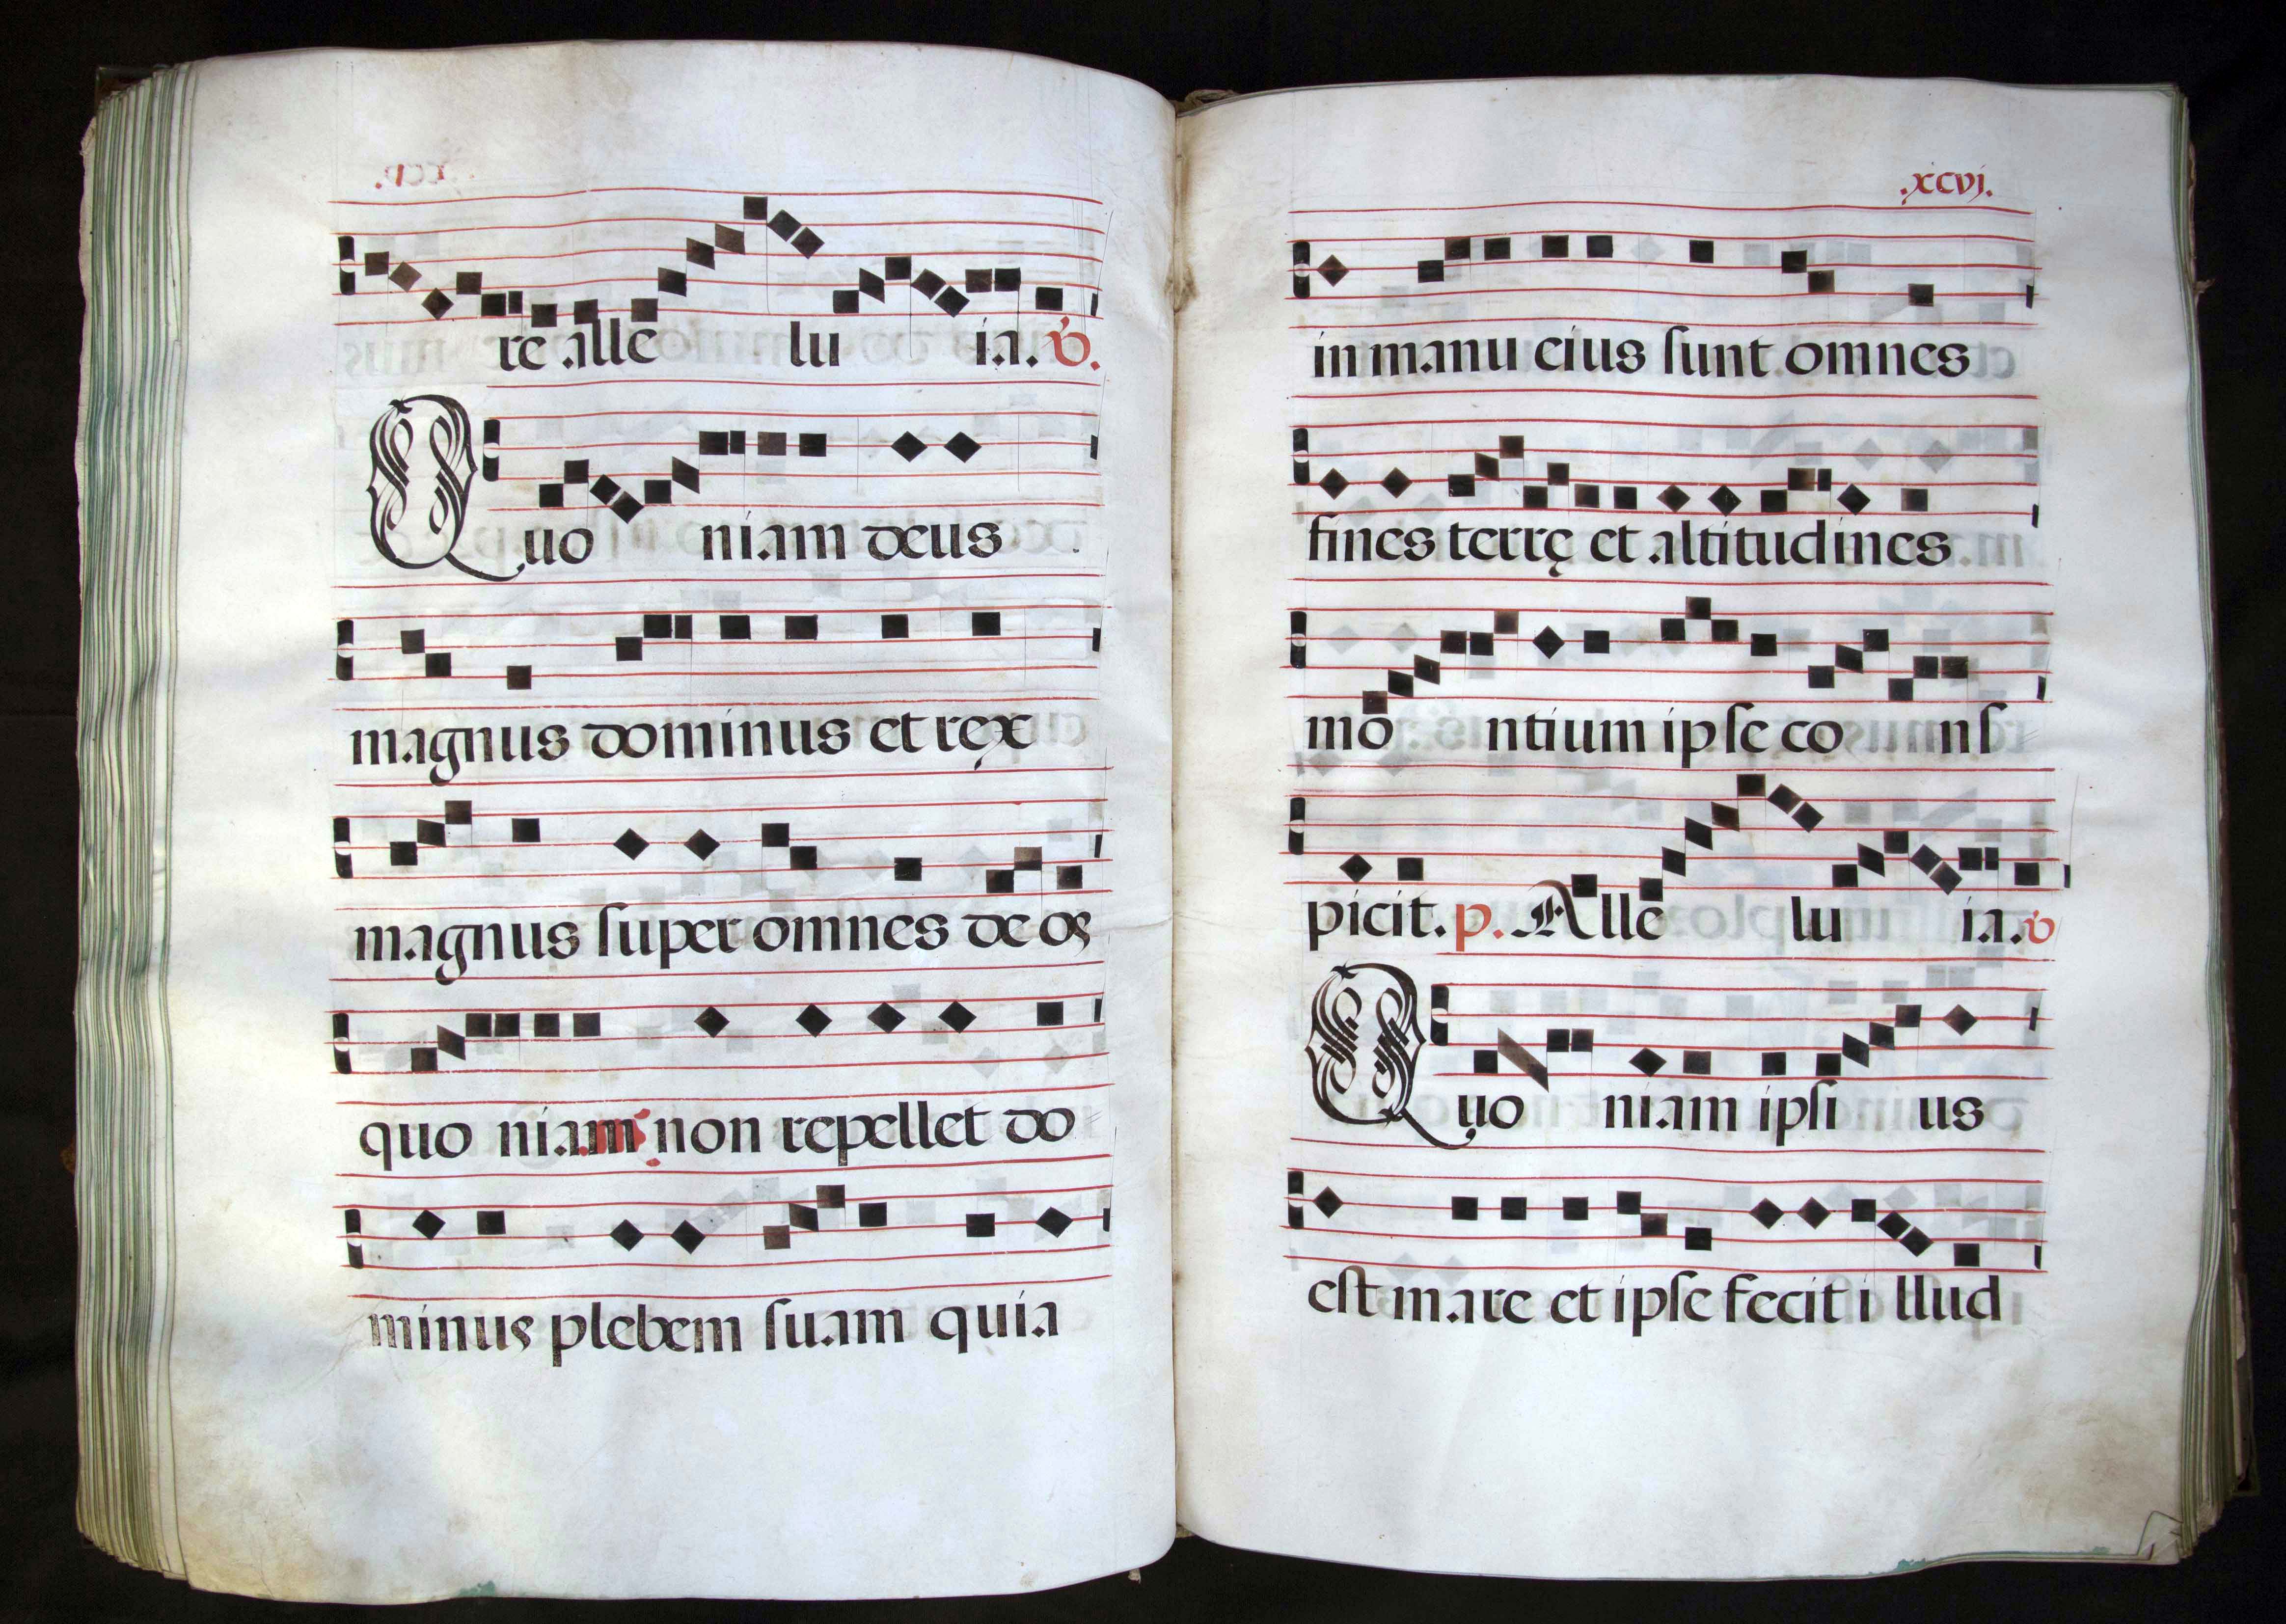 re alle lu ia. ℣.
Quo niam deus
magnus dominus et rex
magnus ſuper omnes de os
quo niam non repellet do
minus plebem ſuam quia
.xcvj.
in manu eius ſunt omnes
fines terrę et altitudines
mo ntium ipſe co nſ
picit. p. Alle lu ia. ℣
Quo niam ipſi us
eſt mare et ipſe fecit i llud